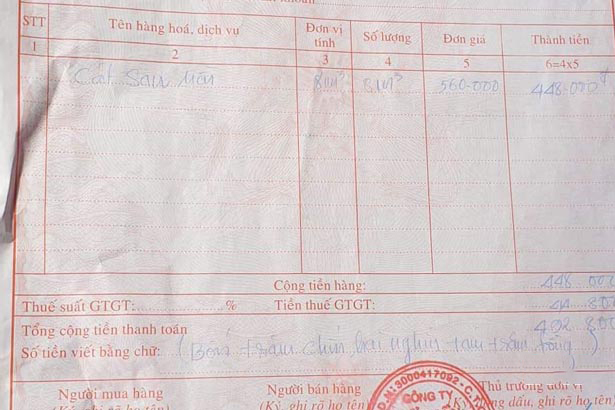 STT Tên hàng hoá, dịch vụ Đơn vị tính Số lượng Đơn giá Thành tiền
1 2 3 4 5 6=4x5
Cát san nền 8m³ 8m³ 560.000 448.000đ
Cộng tiền hàng: 448.000
Thuế suất GTGT: % Tiền thuế GTGT: 44.80
Tổng cộng tiền thanh toán 492.800
Số tiền viết bằng chữ: (Bốn trăm chín hai nghìn tám trăm đồng)
Người mua hàng Người bán hàng Thủ trưởng đơn vị
(Ký, ghi rõ họ tên) (Ký, ghi rõ họ tên) (Ký, đóng dấu, ghi họ tên)
3000417092-C.
CÔNG TY